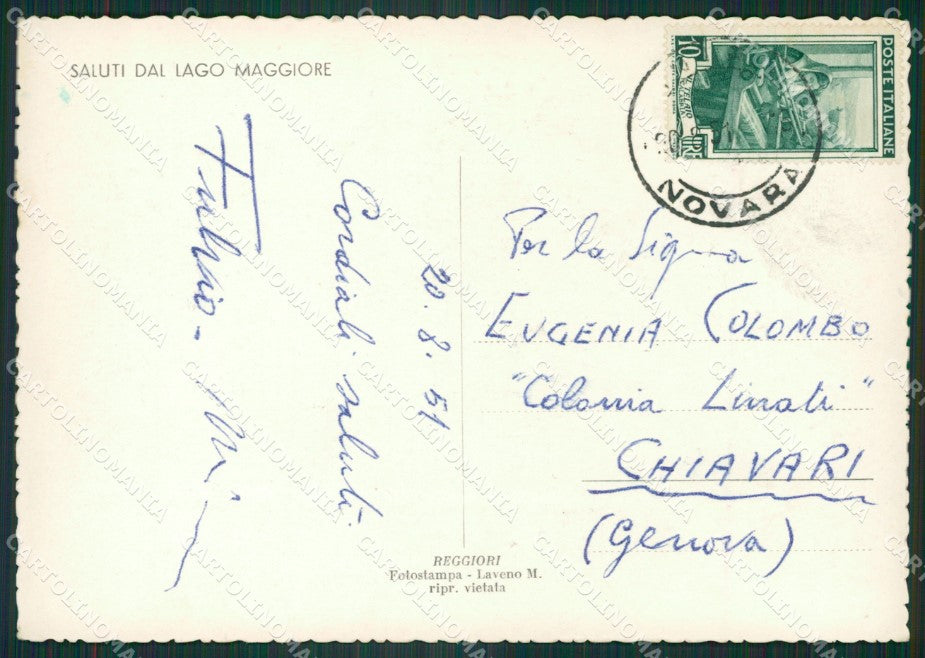 SALUTI DAL LAGO MAGGIORE
20.8.51
Cordiali saluti.
Fulvio -
REGGIORI
Fotostampa - Laveno M.
ripr. vietata
10 LIRE
AL TELAIO
POSTE ITALIANE
NOVARA
Per la Sigra
EUGENIA COLOMBO
"Colonia Linati"
CHIAVARI
(Genova)
CARTOLINOMANIA